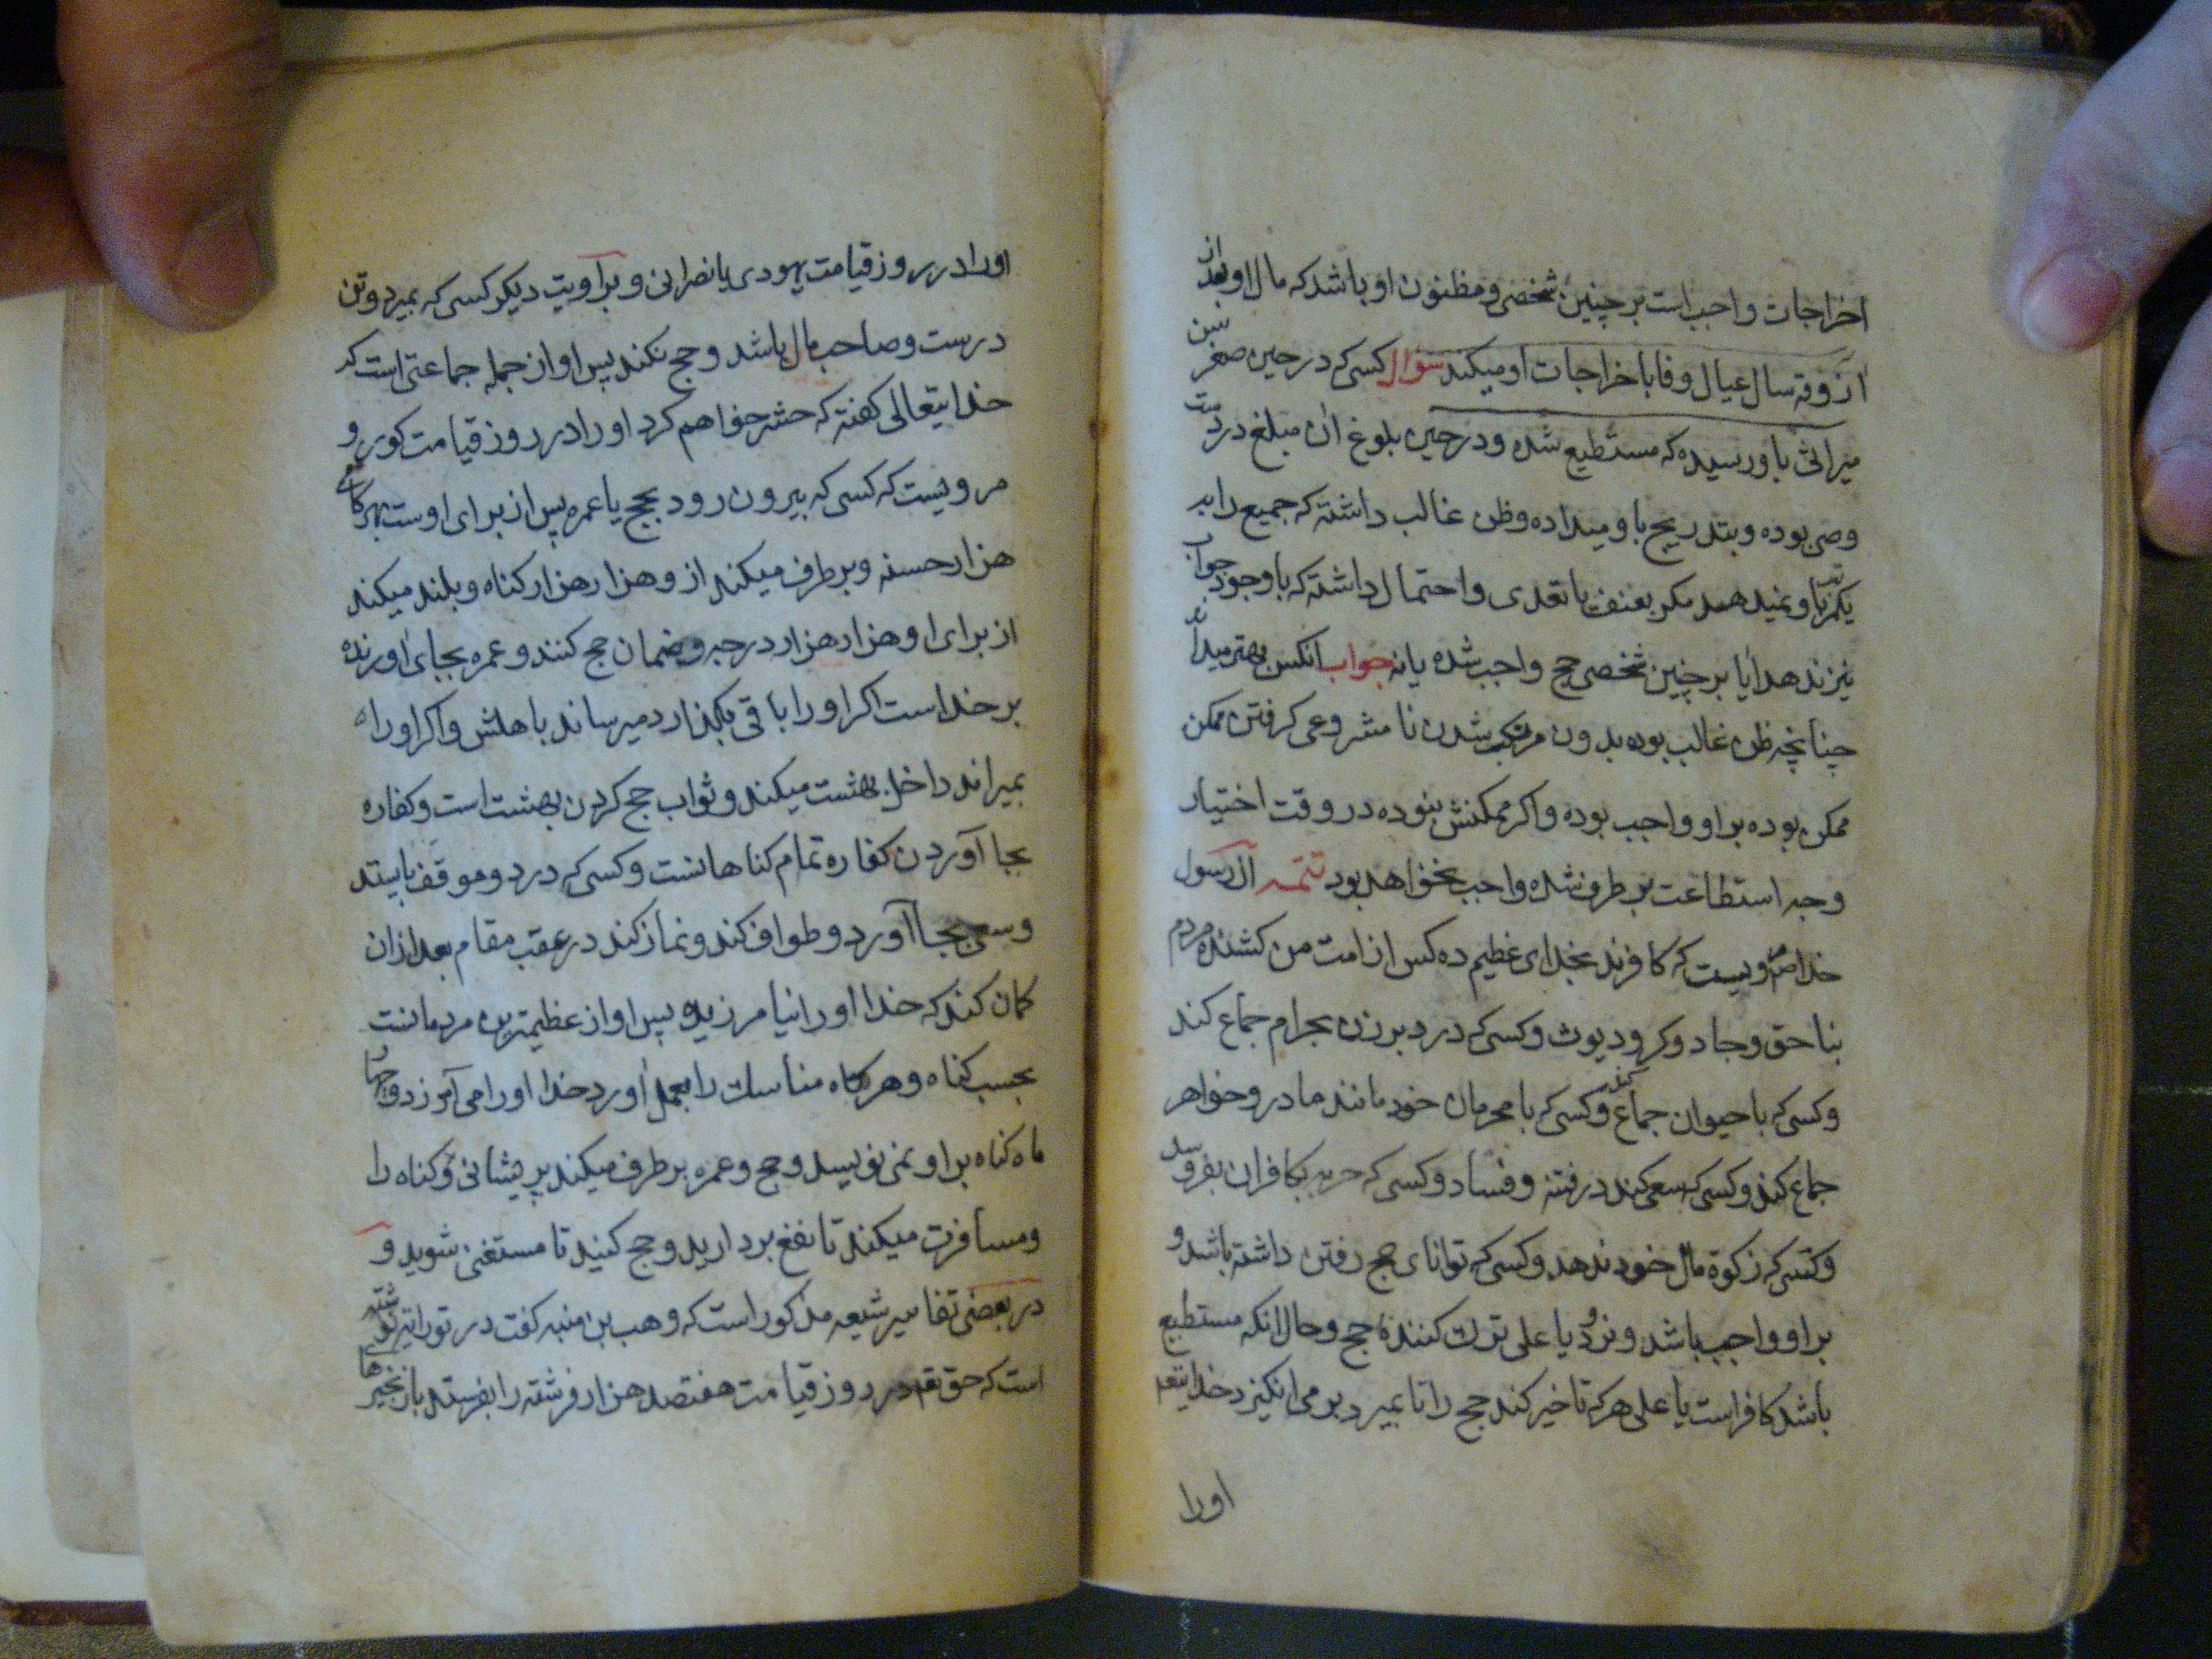 اخراجات واجب است بر چنین شخصی و مظنون او باشد که مال او بعد از
آزوقه سال عیال وفا باخراجات او میکند سؤال کسی که در حین صغر سن
میراثی باو رسیده که مستطیع شده و در حین بلوغ آن مبلغ در دست
وصی بوده و بتدریج باو میداده و ظن غالب داشته که جمیع را به
یکمرتبه باو نمیدهد مکر بعنف یا تعدی و احتمال داشته که باوجود جواب
نیز ندهد آیا بر چنین شخصی حج واجب شده یا نه جواب آنکس بهتر میداند
چنانچه ظن غالب بوده بدون مرتکب شدن نامشروعی کرفتن ممکن
ممکن بوده بر او واجب بوده و اکر ممکنش نبوده در وقت اختیار
وجه استطاعت بر طرف شده واجب نخواهد بود تتمه از رسول
خدا ص مرویست که کافرند بخدای عظیم ده کس از امت من کشنده مردم
بناحق و جادوکر و دیوث و کسی که در دبر زن بحرام جماع کند
و کسی که با حیوان جماع کند و کسی که با محرمان خود مانند مادر و خواهر
جماع کند و کسی که سعی کند در فتنه و فساد و کسی که حربه بکافران بفروشد
و کسی که زکوة مال خود ندهد و کسی که توانای حج رفتن داشته باشد و
بر او واجب باشد و نرود یا علی ترک کننده حج و حال آنکه مستطیع
باشد کافر است یا علی هر که تاخیر کند حج را تا بمیرد بر می انکیزد خدایتعه
اورا
اورا در روز قیامت یهودی یا نصرانی و بروایت دیکر کسی که بمیرد و تن
درست و صاحب مال باشد و حج نکند پس او از جمله جماعتی است که
خدایتعالی کفته که حشر خواهم کرد اورا در روز قیامت کور و
مرویست که کسی که بیرون رود بحج یا عمره پس از برای اوست بهر کامی
هزار حسنه و بر طرف میکند ازو هزار هزار کناه و بلند میکند
از برای او هزار هزار درجه و ضمان حج کنند و عمره بجای آورنده
بر خداست اکر اورا باقی بکذارد میرساند باهلش و اکر اورا
بمیراند داخل بهشت میکند و ثواب حج کردن بهشت است و کفاره
بجا آوردن کفاره تمام کناهانست و کسی که در دو موقف بایستد
و سعی بجا آورد و طواف کند و نماز کند در عقب مقام بعد ازان
کمان کند که خدا اورا نیامرزیده پس او از عظیمترین مردمانست
بحسب کناه و هرکاه مناسک را بعمل آورد خدا اورا می آمرزد و چهار
ماه کناه بر او نمی نویسد و حج و عمره بر طرف میکند پریشانی و کناه را
و مسافرت میکند تا نفع بردارید و حج کنید تا مستغنی شوید و
در بعضی تفاسیر شیعه مذکور است که وهب بن منبه کفت در توراتیه نوشته
است که حق تعه در روز قیامت هفتصد هزار فرشته را بفرستد با زنجیرها